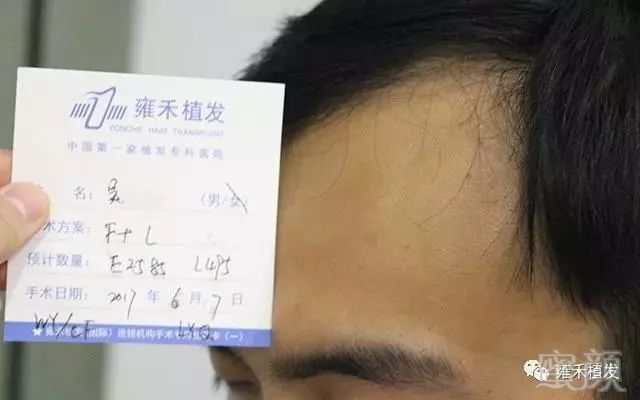 雍禾植发
YONGHE HAIR TRANSPLANT
中国第一家植发专科医院
名: 吴 (男/女)
术方案: F+L
预计数量: E2585 L495
手术日期: 2017 年 6 月 7 日
连锁机构手术
卡(一)
蜜颜
雍禾植发